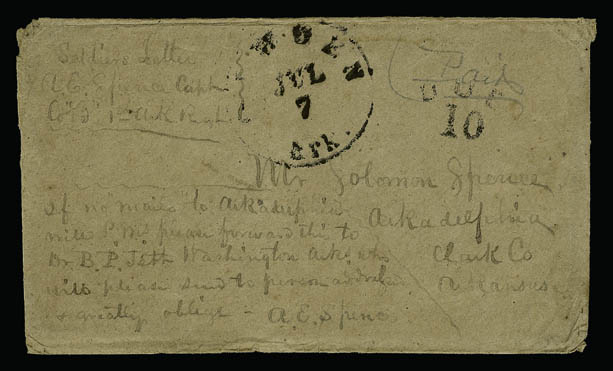 Soldiers Letter
A.E. Spence Capt
Co "B" 1st Ark Regt
JUL
7
Ark.
Paid
DUE
10
Mr Solomon Spence
Arkadelphia
Clark Co
Arkansas
If no mails to Arkadelphia
will P.M. please forward this to
Dr. B. P. Jett Washington Ark. who
will please send to person addressed
& greatly oblige - A.E. Spence